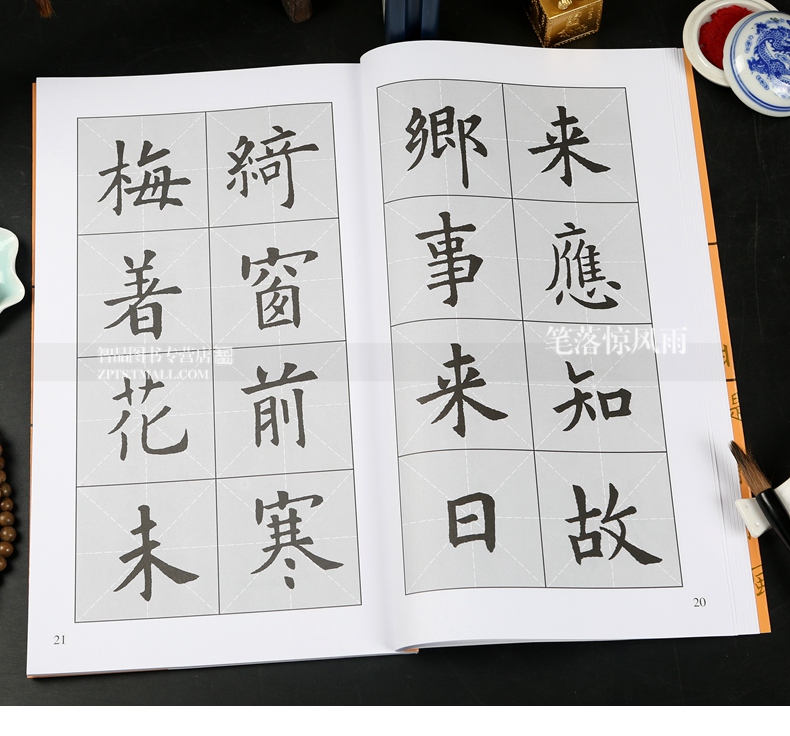 来應知故
鄉事来日
20
綺窗前寒
梅着花未
21
智品图书专营店
ZPTSTMALL.COM
笔落惊风雨